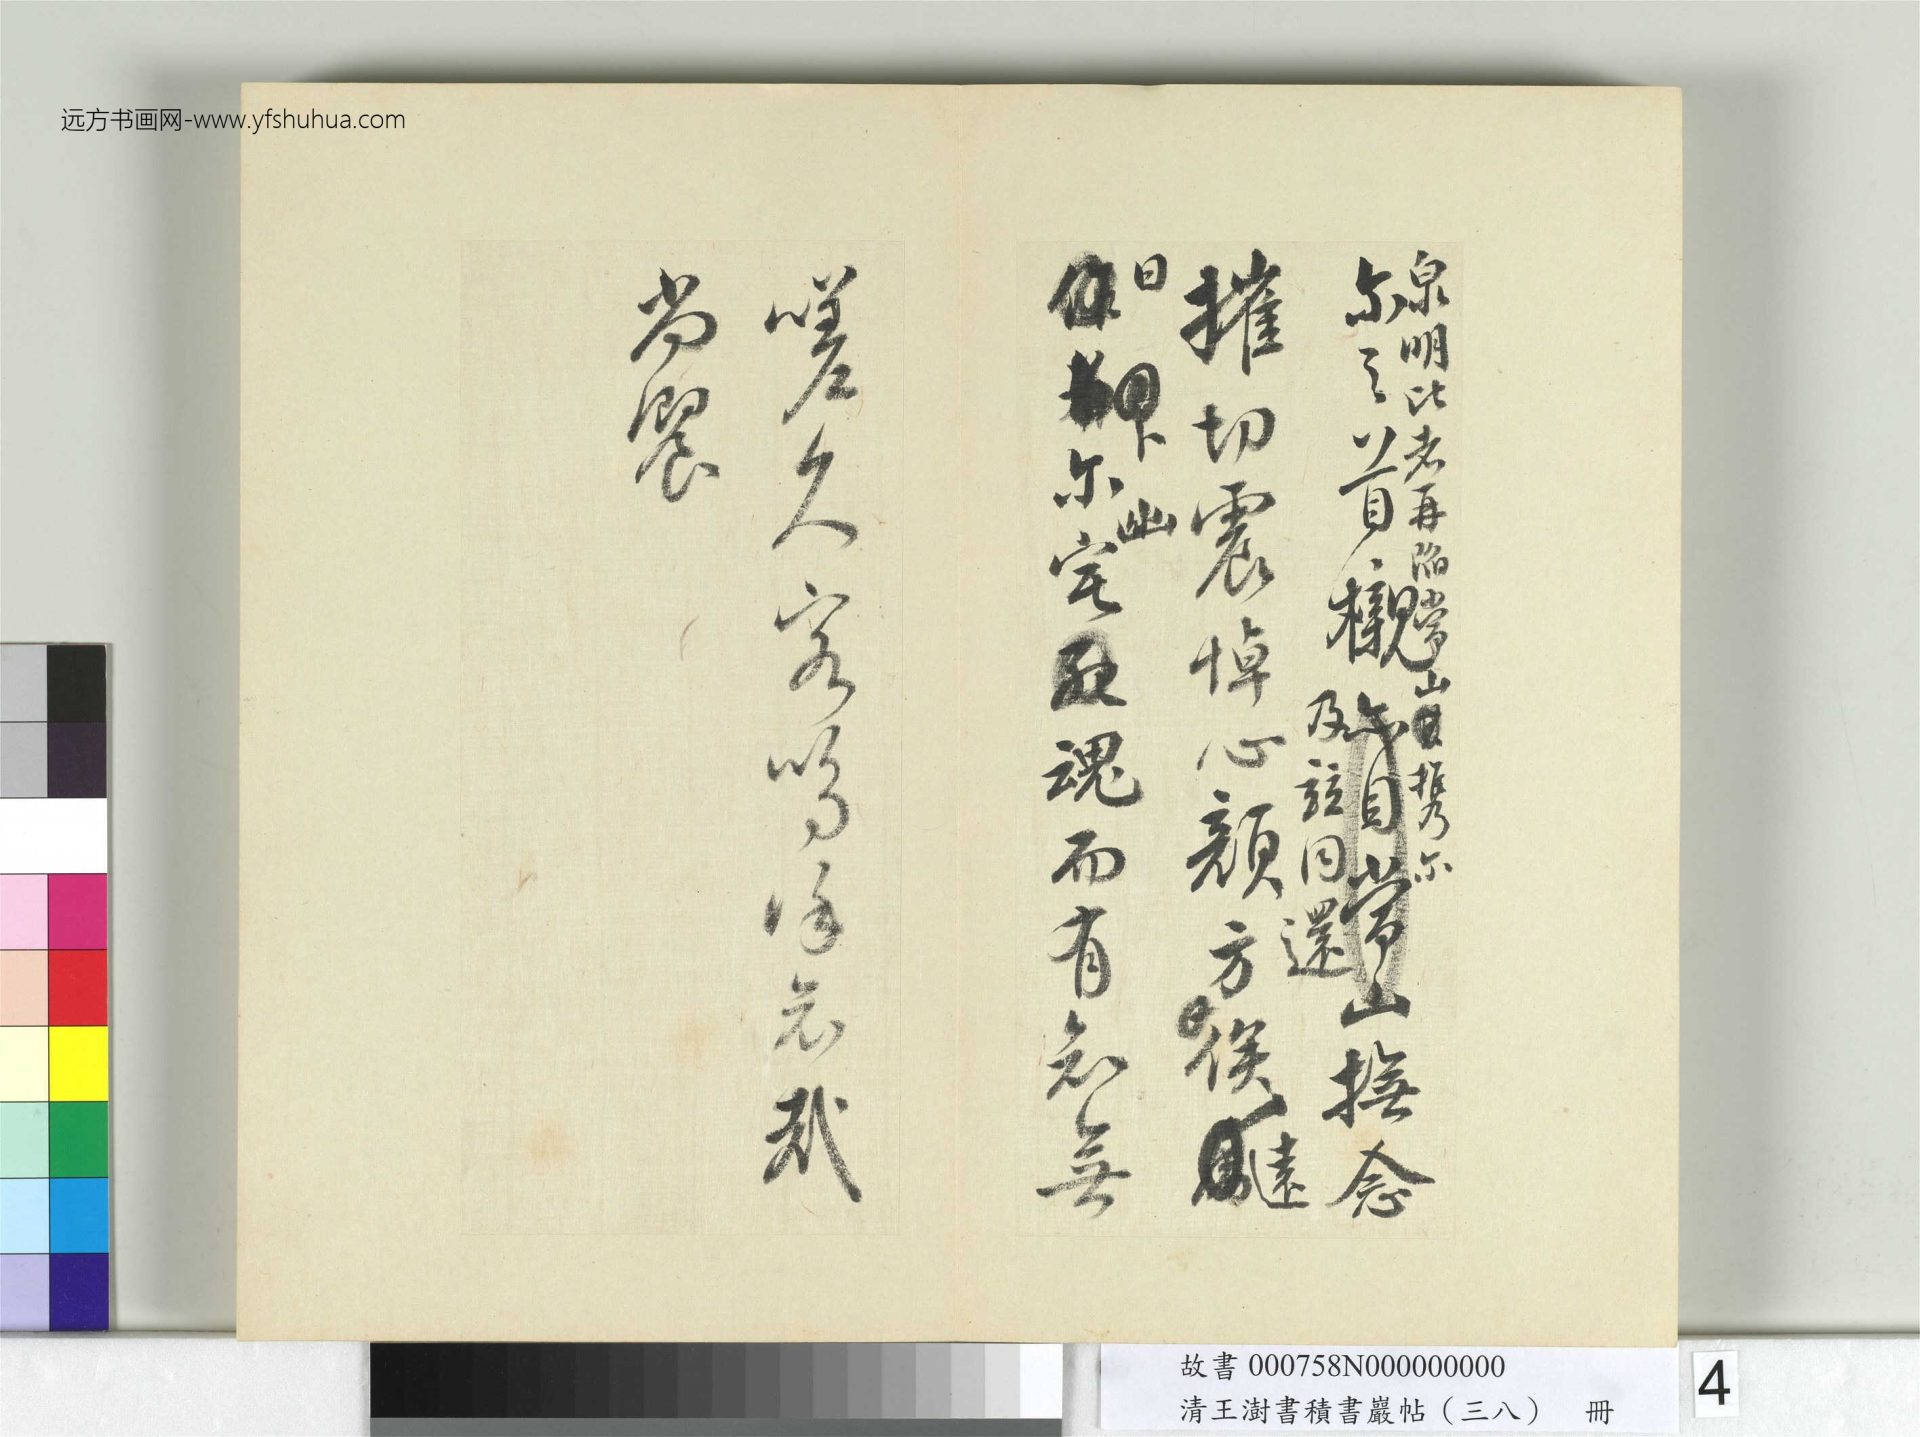 远方书画网-www.yfshuhua.com
泉明比者再陷常山携尔
尔之首櫬
自常山撫念
及茲同還
摧切震悼心顏方俟
遠
日
卜
幽
尔宅魂而有知無
嗟久客嗚呼哀哉
尚饗
故書 000758N000000000
清王澍書積書巖帖（三八） 冊
4